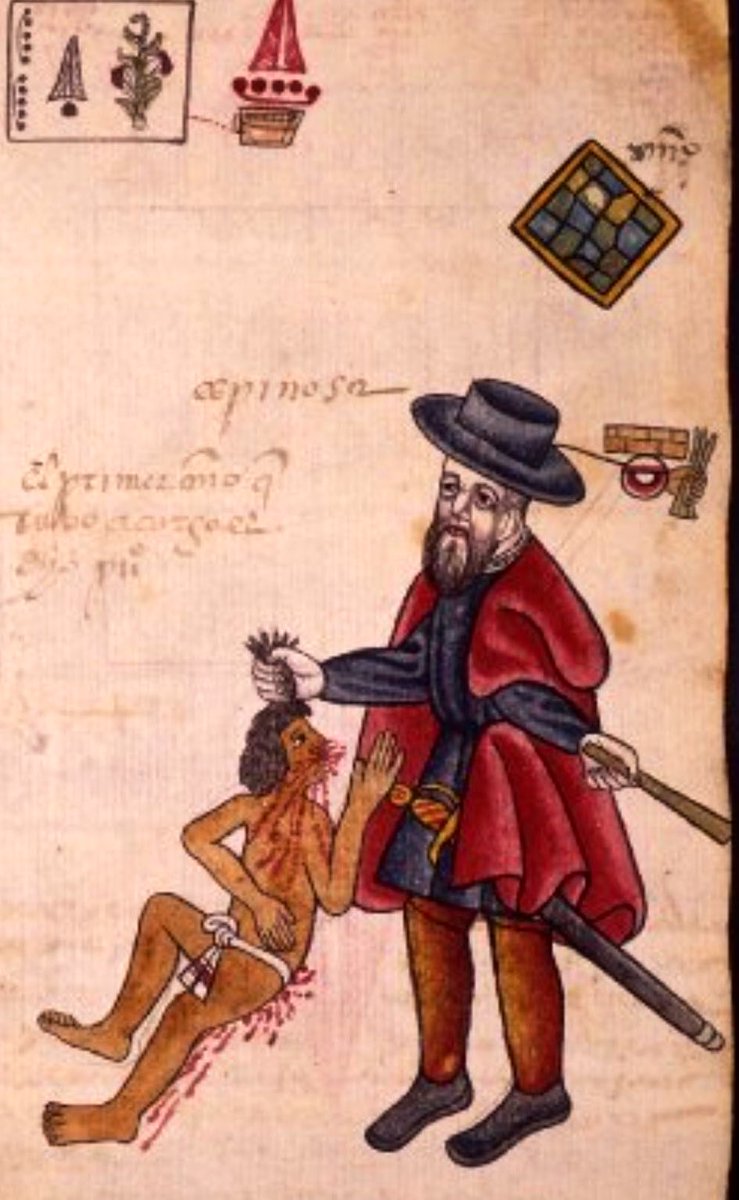 año
espinosa
El primer año q̃
tubo a cargo el
dho puº